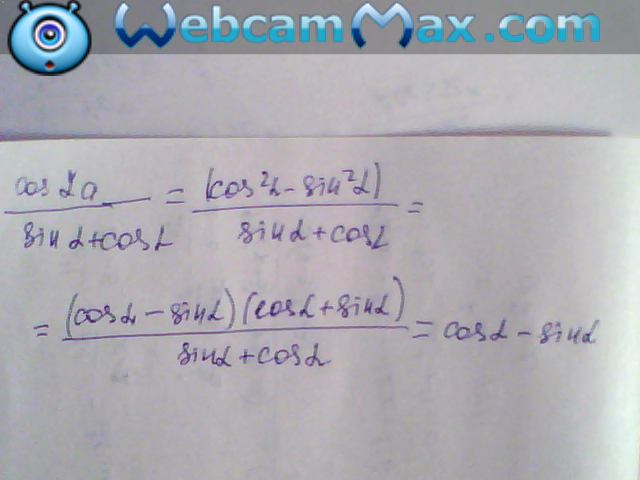 WebcamMax.com
cos 2a / sin α + cos α = (cos²α - sin²α) / sin α + cos α =
= (cos α - sin α)(cos α + sin α) / sin α + cos α = cos α - sin α